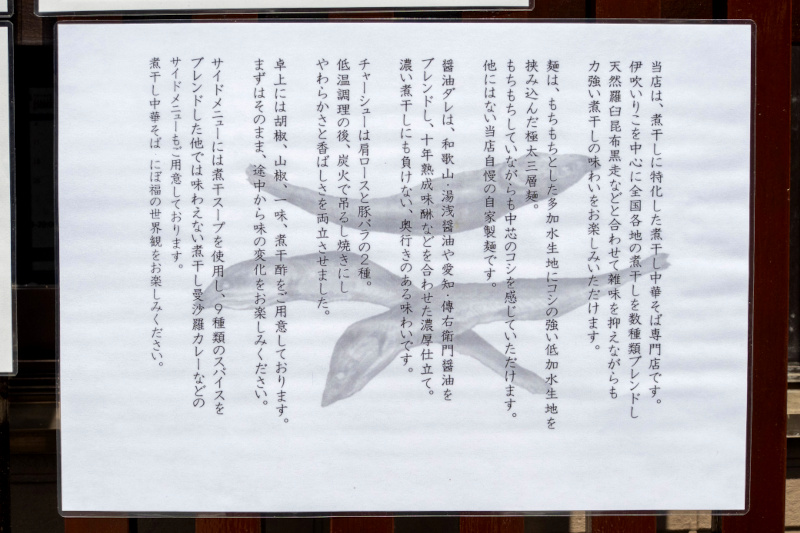 当店は、煮干しに特化した煮干し中華そば専門店です。
伊吹いりこを中心に全国各地の煮干しを数種類ブレンドし
天然羅臼昆布黒走などと合わせて雑味を抑えながらも
力強い煮干しの味わいをお楽しみいただけます。
麺は、もちもちとした多加水生地にコシの強い低加水生地を
挟み込んだ極太三層麺。
もちもちしていながらも中芯のコシを感じていただけます。
他にはない当店自慢の自家製麺です。
醤油ダレは、和歌山・湯浅醤油や愛知・傳右衛門醤油を
ブレンドし、十年熟成味醂などを合わせた濃厚仕立て。
濃い煮干しにも負けない、奥行きのある味わいです。
チャーシューは肩ロースと豚バラの2種。
低温調理の後、炭火で吊るし焼きにし
やわらかさと香ばしさを両立させました。
卓上には胡椒、山椒、一味、煮干酢をご用意しております。
まずはそのまま、途中から味の変化をお楽しみください。
サイドメニューには煮干スープを使用し、9種類のスパイスを
ブレンドした他では味わえない煮干し曼沙羅カレーなどの
サイドメニューもご用意しております。
煮干し中華そば にぼ福の世界観をお楽しみください。